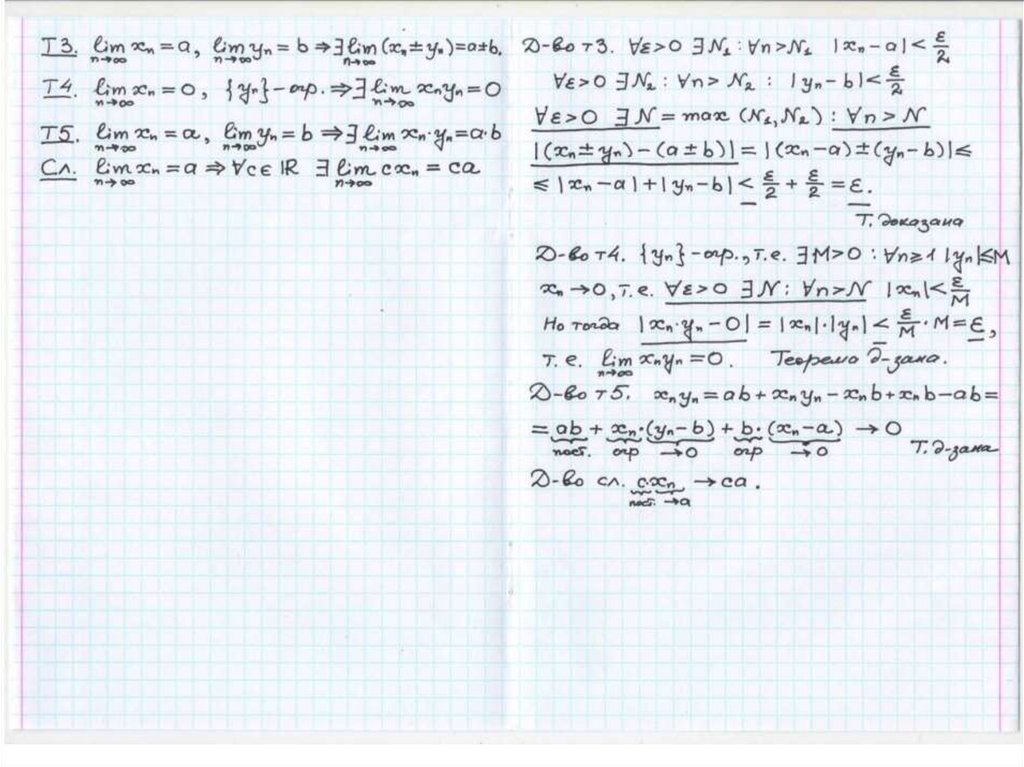 Т3. lim xₙ = a, lim yₙ = b ⇒ ∃ lim (xₙ ± yₙ) = a ± b.
n→∞ n→∞ n→∞
Т4. lim xₙ = 0, {yₙ} – огр. ⇒ ∃ lim xₙyₙ = 0
n→∞ n→∞
Т5. lim xₙ = a, lim yₙ = b ⇒ ∃ lim xₙ·yₙ = a·b
n→∞ n→∞ n→∞
Сл. lim xₙ = a ⇒ ∀c ∈ ℝ ∃ lim cxₙ = ca
n→∞ n→∞
Д-во т3. ∀ε>0 ∃N₁ : ∀n>N₁ |xₙ – a| < ε/2
∀ε>0 ∃N₂ : ∀n > N₂ : |yₙ – b| < ε/2
∀ε>0 ∃N = max (N₁, N₂) : ∀n > N
|(xₙ ± yₙ) – (a ± b)| = |(xₙ – a) ± (yₙ – b)| ≤
≤ |xₙ – a| + |yₙ – b| < ε/2 + ε/2 = ε.
Т. доказана
Д-во т4. {yₙ} – огр., т.е. ∃M>0 : ∀n≥1 |yₙ| ≤ M
xₙ → 0, т.е. ∀ε>0 ∃N : ∀n>N |xₙ| < ε/M
Но тогда |xₙ·yₙ – 0| = |xₙ|·|yₙ| < ε/M · M = ε,
т.е. lim xₙyₙ = 0. Теорема д-зана.
n→∞
Д-во т5. xₙyₙ = ab + xₙyₙ – xₙb + xₙb – ab =
= ab + xₙ·(yₙ – b) + b·(xₙ – a) → 0
пост. огр →0 огр →0 Т. д-зана
Д-во сл. c·xₙ → ca.
пост. →a